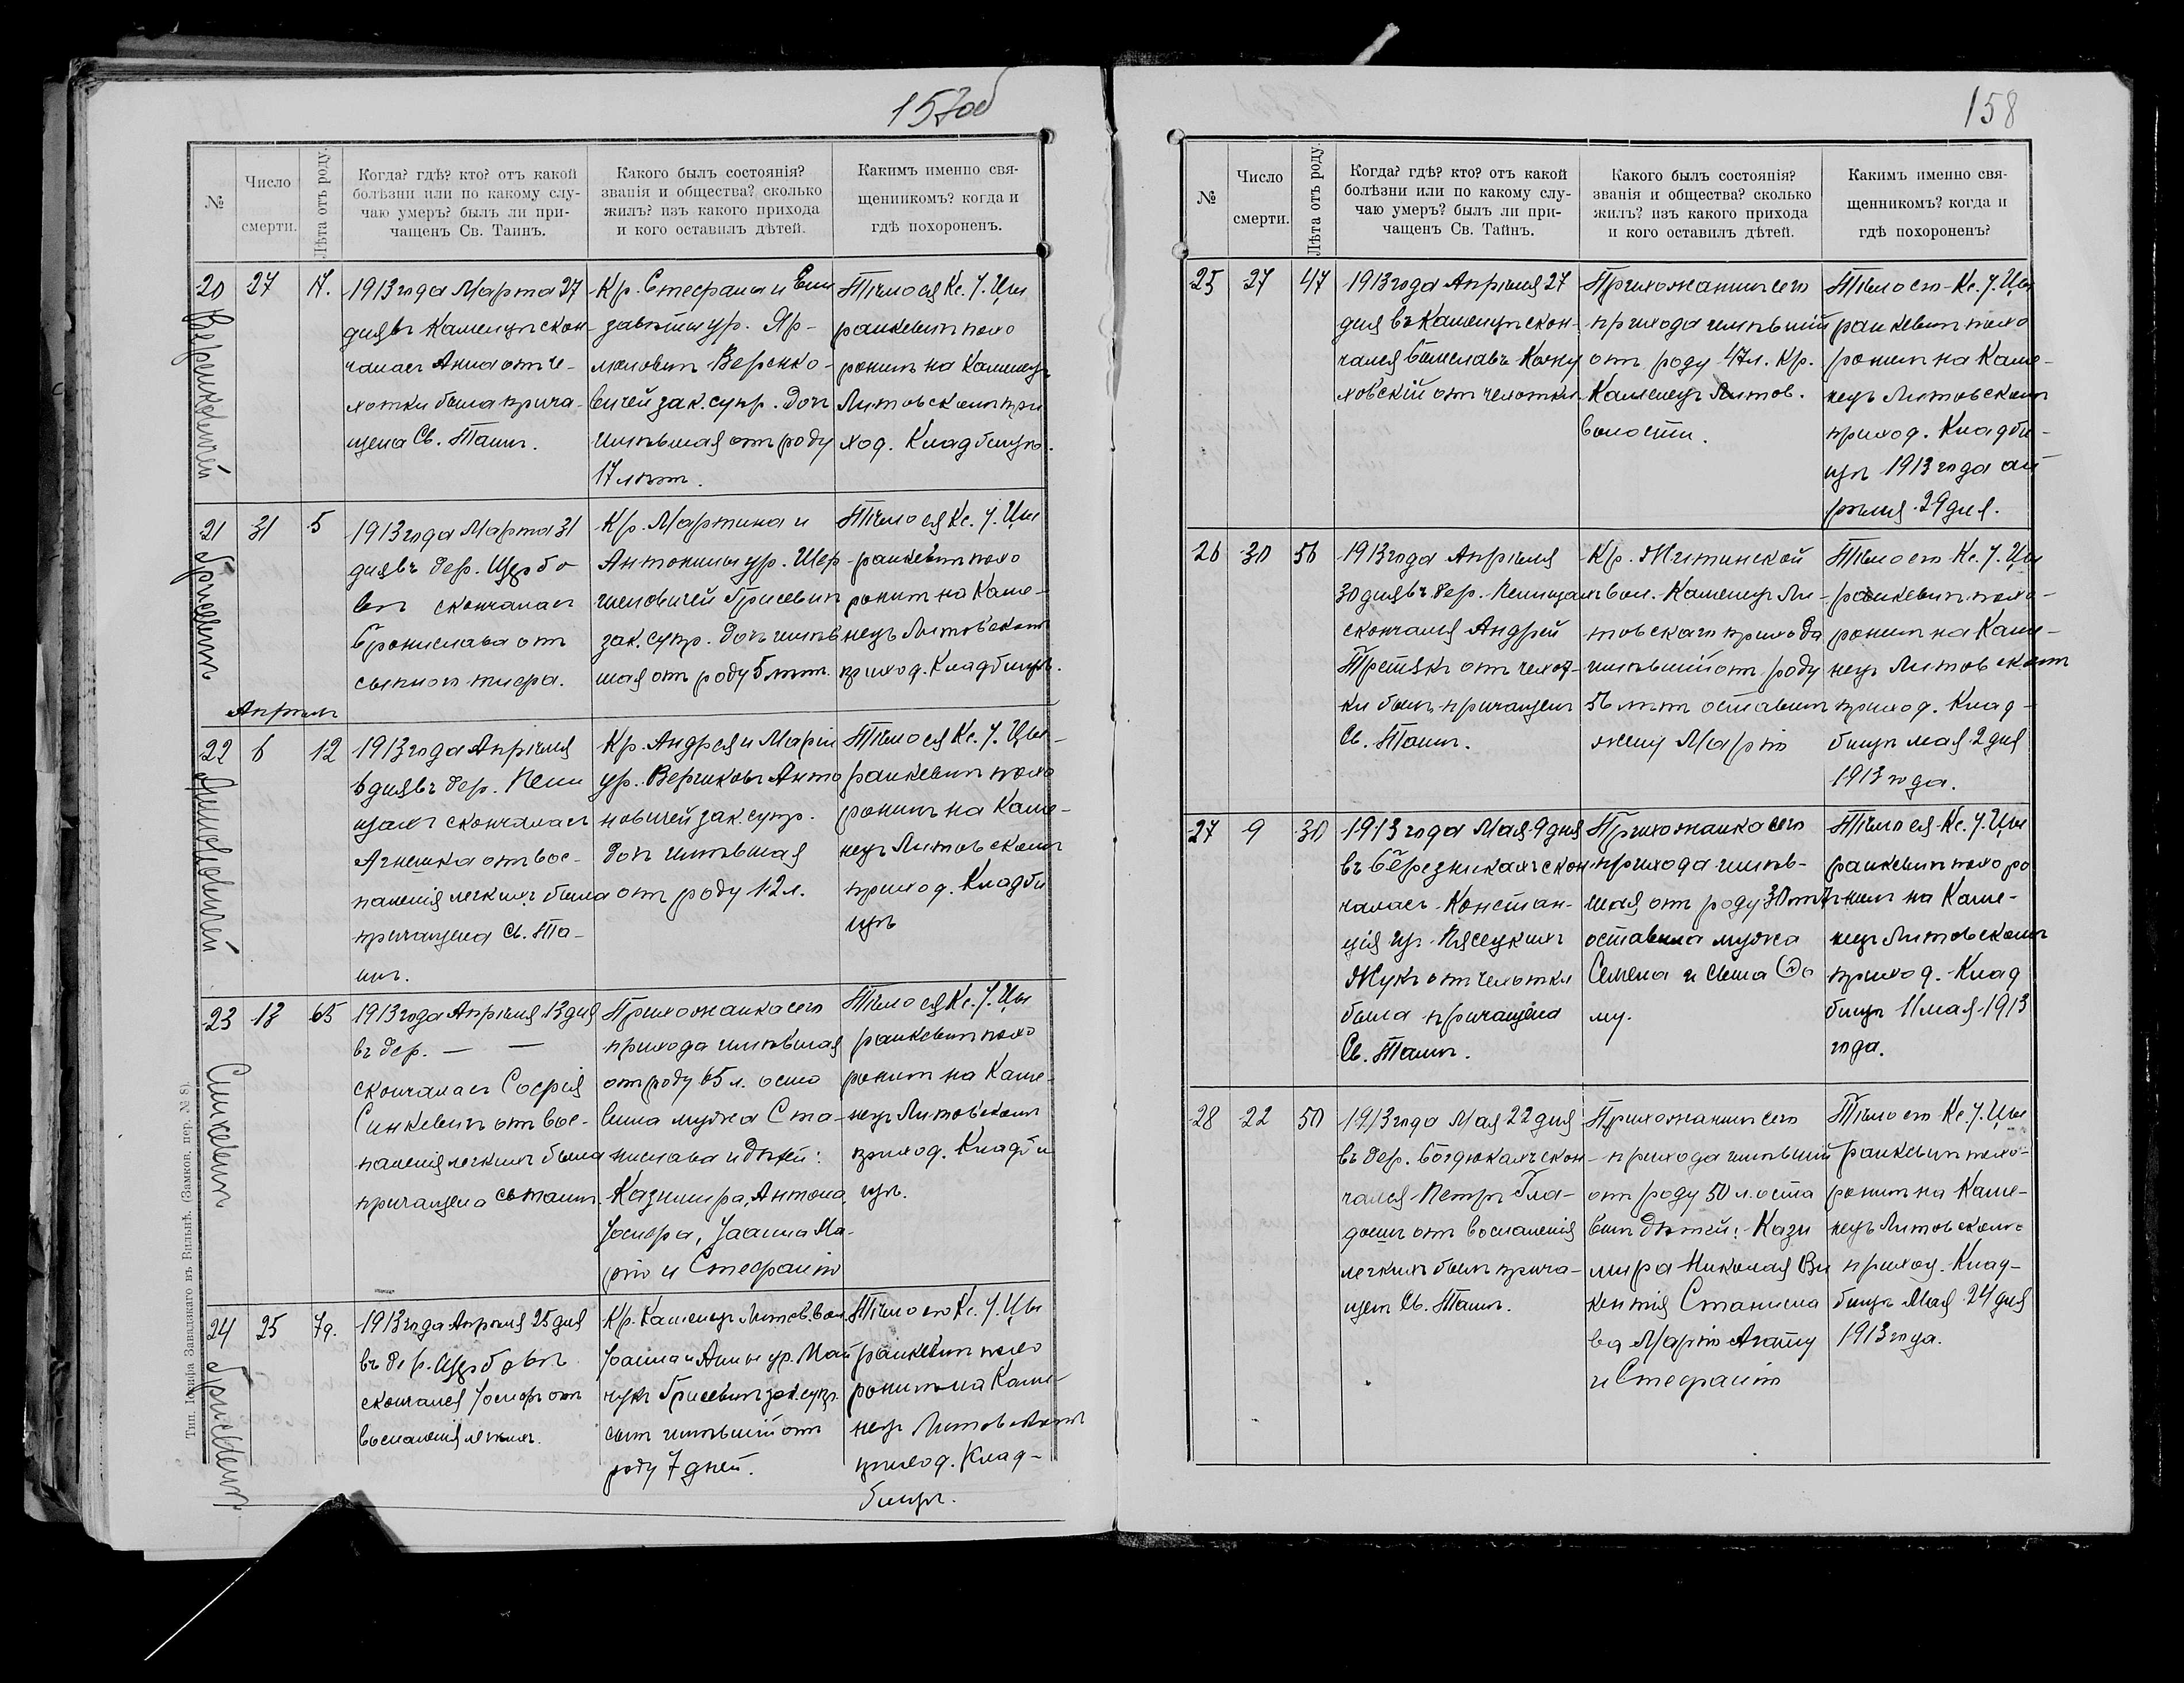 157об
№
Число
смерти.
Лѣта отъ роду.
Когда? гдѣ? кто? отъ какой
болѣзни или по какому слу-
чаю умеръ? былъ ли при-
чащенъ Св. Таинъ.
Какого былъ состоянія?
званія и общества? сколько
жилъ? изъ какого прихода
и кого оставилъ дѣтей.
Какимъ именно свя-
щенникомъ? когда и
гдѣ похороненъ.
20
27
17.
Веренковичей
1913 года Марта 27
дня въ Каменцѣ скон-
чалась Анна отъ че-
хотки была прича-
щена Св. Таинъ.
Кр. Стефана и Ели
заветы ур. Яр-
моловичъ Веренко-
вичей зак. супр. дочь
имѣвшая отъ роду
17 лѣтъ.
Тѣло ея Кс. І. Цы
ранкевичъ похо
ронилъ на Каменец
Литовскомъ при
ход. Кладбищѣ.
21
31
5
Грисевичъ
1913 года Марта 31
дня въ дер. Щербо
вѣ скончалась
Бронислава отъ
сыпного тифа.
Кр. Мартина и
Антонины ур. Шер-
шеновичей Грисевичъ
зак. супр. дочь имѣв
шая отъ роду 5 лѣтъ.
Тѣло ея Кс. І. Цы
ранкевичъ похо
ронилъ на Каме-
нецъ Литовскомъ
приход. Кладбищѣ.
Апрѣль
22
6
12
Антоновичей
1913 года Апрѣля
6 дня въ дер. Пели
щахъ скончалась
Агнешка отъ вос-
паленія легкихъ была
причащена Св. Та-
инъ.
Кр. Андрея и Маріи
ур. Верчиковъ Анто
новичей зак. супр.
дочь имѣвшая
отъ роду 12 л.
Тѣло ея Кс. І. Цы-
ранкевичъ похо
ронилъ на Каме-
нецъ Литовскомъ
приход. Кладби
щѣ
23
13
65
Синкевичъ
1913 года Апрѣля 13 дня
въ дер. — —
скончалась Софія
Синкевичъ отъ вос-
паленія легкихъ была
причащена Св Таинъ.
Прихожанка сего
прихода имѣвшая
отъ роду 65 л. оста
вила мужа Ста-
нислава и дѣтей:
Казимира, Антона
Іосифа, Іоанна Ма-
рію и Стефанію
Тѣло ея Кс. І. Цы
ранкевичъ похо
ронилъ на Каме-
нецъ Литовскомъ
приход. Кладби
щѣ.
24
25
7д.
Грисевичъ
1913 года Апрѣля 25 дня
въ дер. Щербовѣ
скончался Іосифъ отъ
воспаленія легкихъ.
Кр. Каменецъ Литов. вол.
Іоанна и Анны ур. Май
чукъ Грисевичъ зак. супр.
сынъ имѣвшій отъ
роду 7 дней.
Тѣло его Кс. І. Цы
ранкевичъ похо
ронилъ на Каме-
нецъ Литовскомъ
приход. Клад-
бищѣ.
Тип. Іосифа Завадзкаго въ Вильнѣ. (Замков. пер. № 8).
158
№
Число
смерти.
Лѣта отъ роду
Когда? гдѣ? кто? отъ какой
болѣзни или по какому слу-
чаю умеръ? былъ ли при-
чащенъ Св. Тайнъ.
Какого былъ состоянія?
званія и общества? сколько
жилъ? изъ какого прихода
и кого оставилъ дѣтей.
Какимъ именно свя-
щенникомъ? когда и
гдѣ похороненъ?
25
27
47
1913 года Апрѣля 27
дня въ Каменцѣ скон-
чался Болеславъ Кожу
ховскій отъ чехотки
Прихожанинъ сего
прихода имѣвшій
отъ роду 47 л. Кр.
Каменецъ Литов.
волости.
Тѣло его Кс. І. Цы
ранкевичъ похо
ронилъ на Каме-
нецъ Литовскомъ
приход. Кладби-
щѣ 1913 года ап
рѣля 29 дня.
26
30
56
1913 года Апрѣля
30 дня въ дер. Пелищахъ
скончался Андрей
Третякъ отъ чехот-
ки былъ причащенъ
Св. Таинъ.
Кр. Житинской
вол. Каменецъ Ли-
товскаго прихода
имѣвшій отъ роду
56 лѣтъ оставилъ
жену Марію
Тѣло его Кс. І. Цы
ранкевичъ похо-
ронилъ на Каме-
нецъ Литовскомъ
приход. Клад-
бищѣ мая 2 дня
1913 года.
27
9
30
1913 года Мая 9 дня
въ Березникахъ скон
чалась Констан-
ція ур. Пясецкихъ
Жукъ отъ чехотки
была причащена
Св. Таинъ.
Прихожанка сего
прихода имѣв-
шая отъ роду 30 лѣтъ
оставила мужа
Семена и сына Фо
му.
Тѣло ея Кс. І. Цы
ранкевичъ похоро
нилъ на Каме-
нецъ Литовскомъ
приход. Клад
бищѣ 11 мая 1913
года.
28
22
50
1913 года Мая 22 дня
въ дер. Богдюкахъ скон-
чался Петръ Гла-
дышъ отъ воспаленія
легкихъ былъ прича-
щенъ Св. Таинъ.
Прихожанинъ сего
прихода имѣвшій
отъ роду 50 л. оста
вилъ дѣтей: Кази
мира Николая Ви
кентія Станисла
ва Марію Агату
и Стефанію
Тѣло его Кс. І. Цы
ранкевичъ похо-
ронилъ на Каме-
нецъ Литовскомъ
приход. Клад-
бищѣ Мая 24 дня
1913 года.